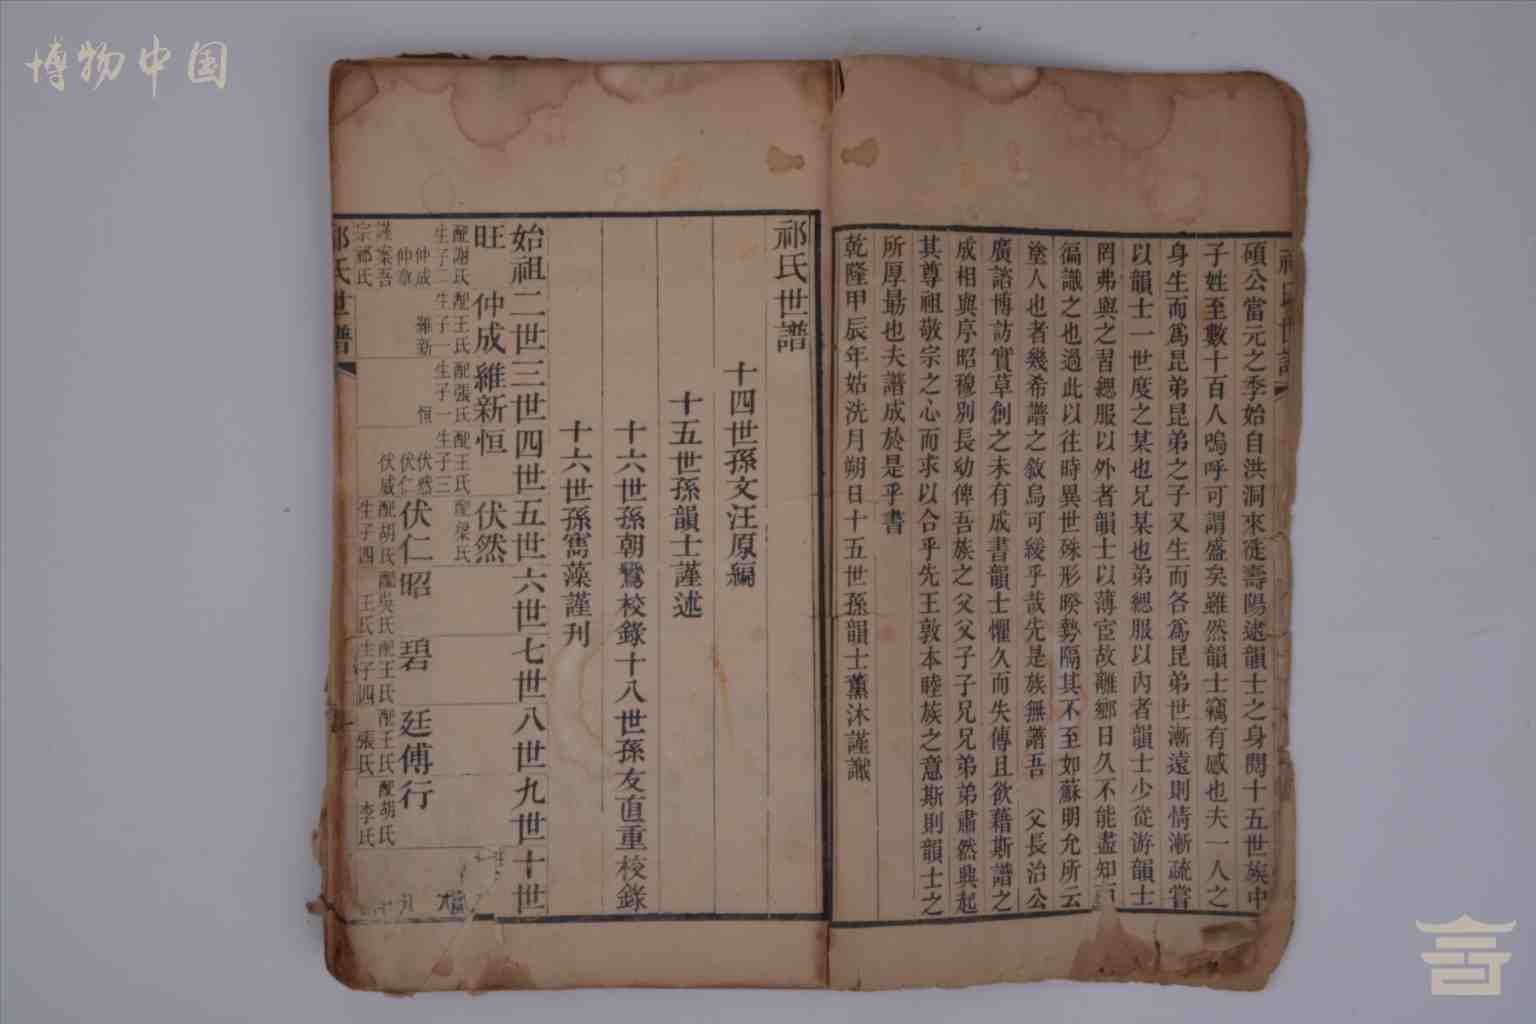 博物中国
碩公當元之季始自洪洞來徙壽陽逮韻士之身閱十五世族中
子姓至數十百人嗚呼可謂盛矣雖然韻士竊有感也夫一人之
身生而爲昆弟昆弟之子又生而各爲昆弟世漸遠則情漸疏嘗
以韻士一世度之某也兄某也弟緦服以內者韻士少從游韻士
罔弗與之習緦服以外者韻士以薄宦故離鄉日久不能盡知
徧識之也過此以往時異世殊形暌勢隔其不至如蘇明允所云
塗人也者幾希譜之敘烏可緩乎哉先是族無譜吾 父長治公
廣諮博訪實草創之未有成書韻士懼久而失傳且欲藉斯譜之
成相與序昭穆別長幼俾吾族之父父子子兄兄弟弟肅然興起
其尊祖敬宗之心而求以合乎先王敦本睦族之意斯則韻士之
所厚勗也夫譜成於是乎書
乾隆甲辰年姑洗月朔日十五世孫韻士薰沐謹識
祁氏世譜
十四世孫文汪原編
十五世孫韻士謹述
十六世孫朝鷺校錄十八世孫友直重校錄
十六世孫寯藻謹刊
始祖二世三世四世五世六世七世八世九世十世
旺 仲成維新恒 伏然
配謝氏 配王氏 配張氏 配王氏 配梁氏
生子二 生子一 生子一 生子三
仲成 維新 恒 伏然
仲章 伏仁 伏仁昭 碧 廷傅行
謹案吾 伏威 配胡氏 配吳氏 配王氏 配王氏 配胡氏
宗祁氏 生子四 王氏 生子四 張氏 李氏
祁氏世譜